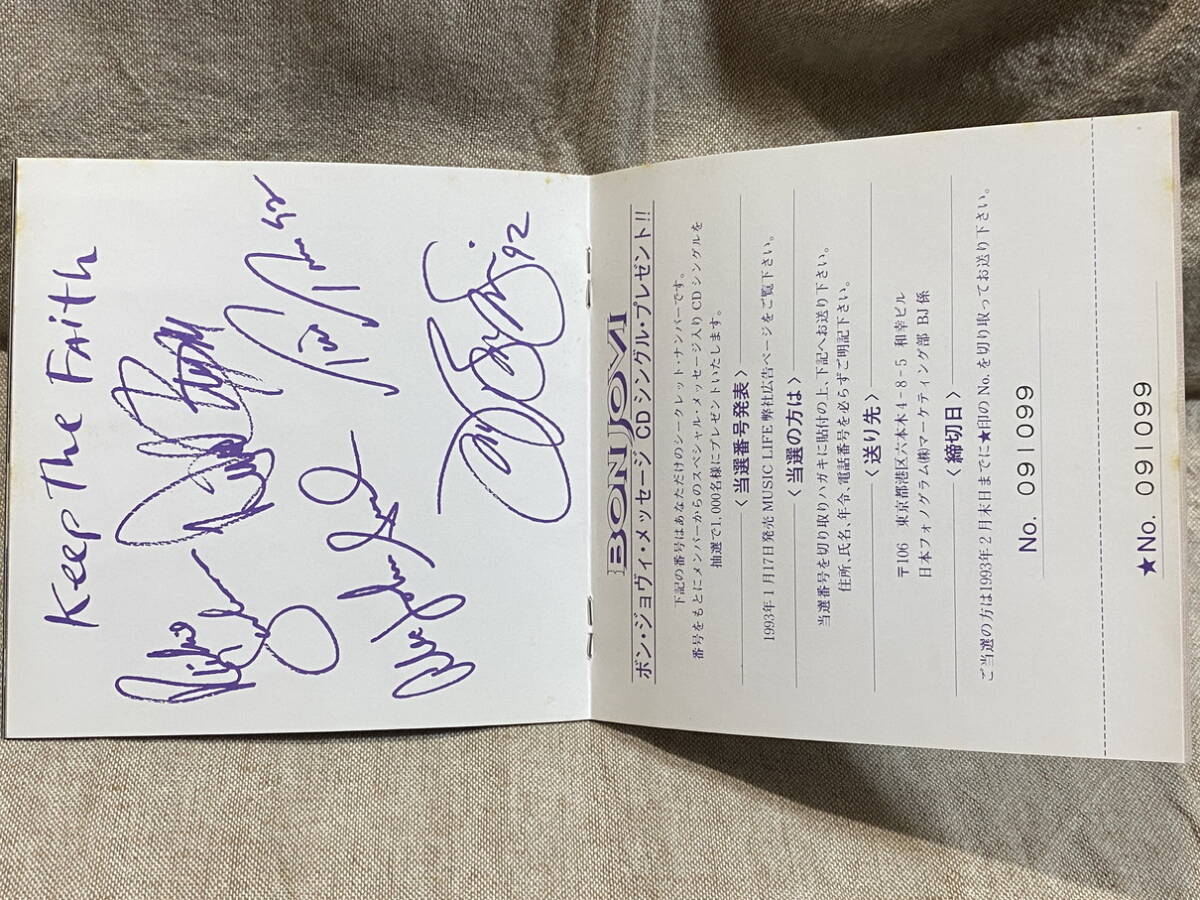 Keep The Faith
92
BON JOVI
ボン・ジョヴィ・メッセージ CD シングル・プレゼント!!
下記の番号はあなただけのシークレット・ナンバーです。
番号をもとにメンバーからのスペシャル・メッセージ入り CD シングルを
抽選で1,000名様にプレゼントいたします。
〈当選番号発表〉
1993年1月17日発売 MUSIC LIFE 弊社広告ページをご覧下さい。
〈当選の方は〉
当選番号を切り取りハガキに貼付の上、下記へお送り下さい。
住所、氏名、年令、電話番号を必らずご明記下さい。
〈送り先〉
〒106 東京都港区六本木4-8-5 和幸ビル
日本フォノグラム㈱マーケティング部 BJ 係
〈締切日〉
ご当選の方は1993年2月末日までに★印の No. を切り取ってお送り下さい。
No. 091099
★No. 091099